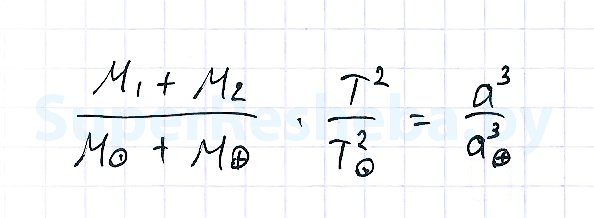 M₁ + M₂ / M⊙ + M⊕ · T² / T⊙² = a³ / a⊕³
Superresheba.by